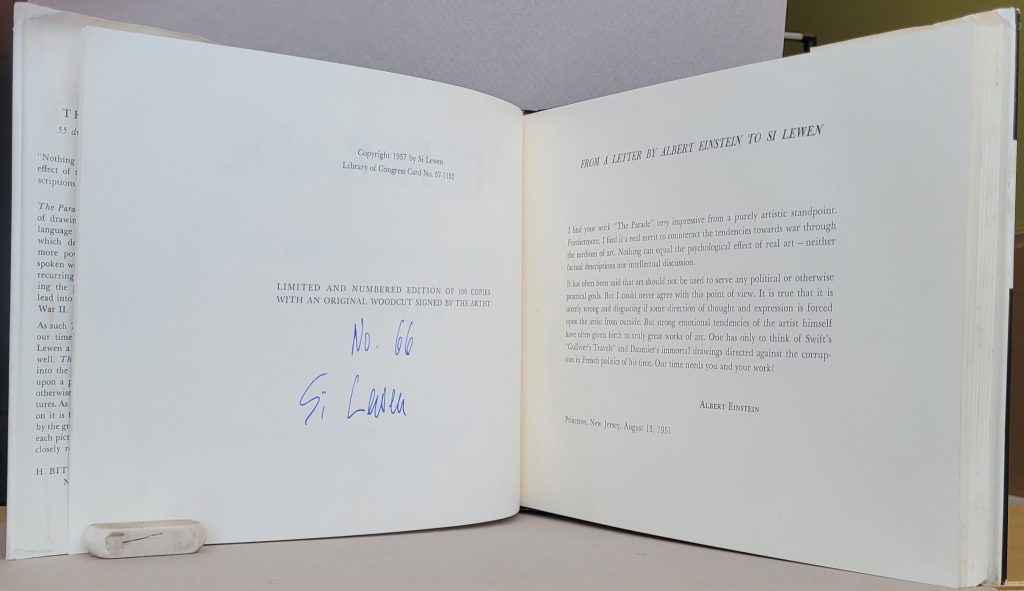 TH
55 d
"Nothing
effect of
scriptions
The Para
of drawin
language
which de
more po
spoken w
recurring
ing the
lead into
War II.
As such
our time
Lewen a
well. Th
into the
upon a p
otherwise
tures. As
on it is
by the gr
each pict
closely r
H. BIT
N
Copyright 1957 by Si Lewen
Library of Congress Card No. 57-1152
LIMITED AND NUMBERED EDITION OF 100 COPIES
WITH AN ORIGINAL WOODCUT SIGNED BY THE ARTIST
No. 66
Si Lewen
FROM A LETTER BY ALBERT EINSTEIN TO SI LEWEN
I find your work "The Parade" very impressive from a purely artistic standpoint.
Furthermore, I find it a real merit to counteract the tendencies towards war through
the medium of art. Nothing can equal the psychological effect of real art — neither
factual descriptions nor intellectual discussion.
It has often been said that art should not be used to serve any political or otherwise
practical goals. But I could never agree with this point of view. It is true that it is
utterly wrong and disgusting if some direction of thought and expression is forced
upon the artist from outside. But strong emotional tendencies of the artist himself
have often given birth to truly great works of art. One has only to think of Swift's
"Gulliver's Travels" and Daumier's immortal drawings directed against the corrup-
tion in French politics of his time. Our time needs you and your work!
ALBERT EINSTEIN
Princeton, New Jersey, August 13, 1951